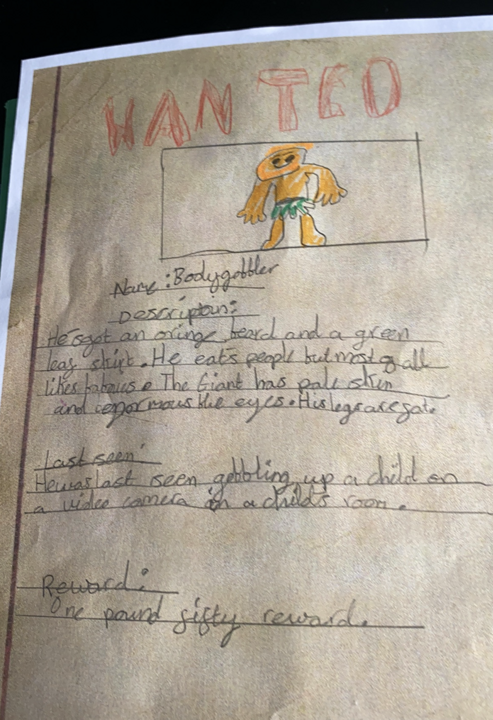 WANTED
Name: Bodygobbler
Descriptoin:
He's got an oringe beard and a green
leaf skirt. He eats people but most of all
likes . The Giant has pale skin
and enormous blue eyes. His legs are
Last seen:
He was last seen gobbling up a child on
a video camera in a childs room.
Reward:
One pound fifty reward.